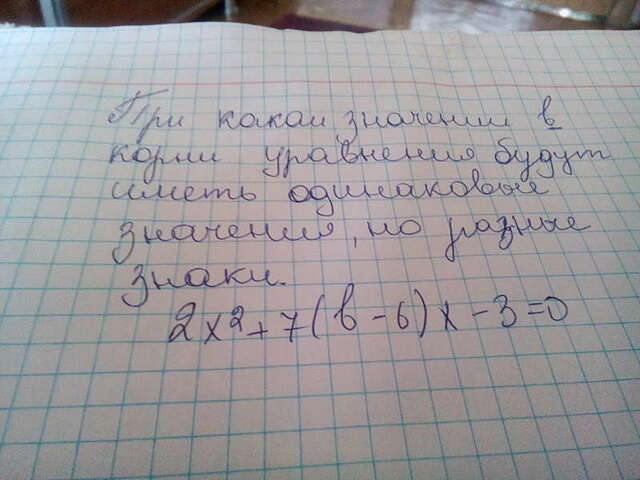 При каком значении в
корни уравнения будут
иметь одинаковые
значения, но разные
знаки.
2x2+7(в-6)x-3=0